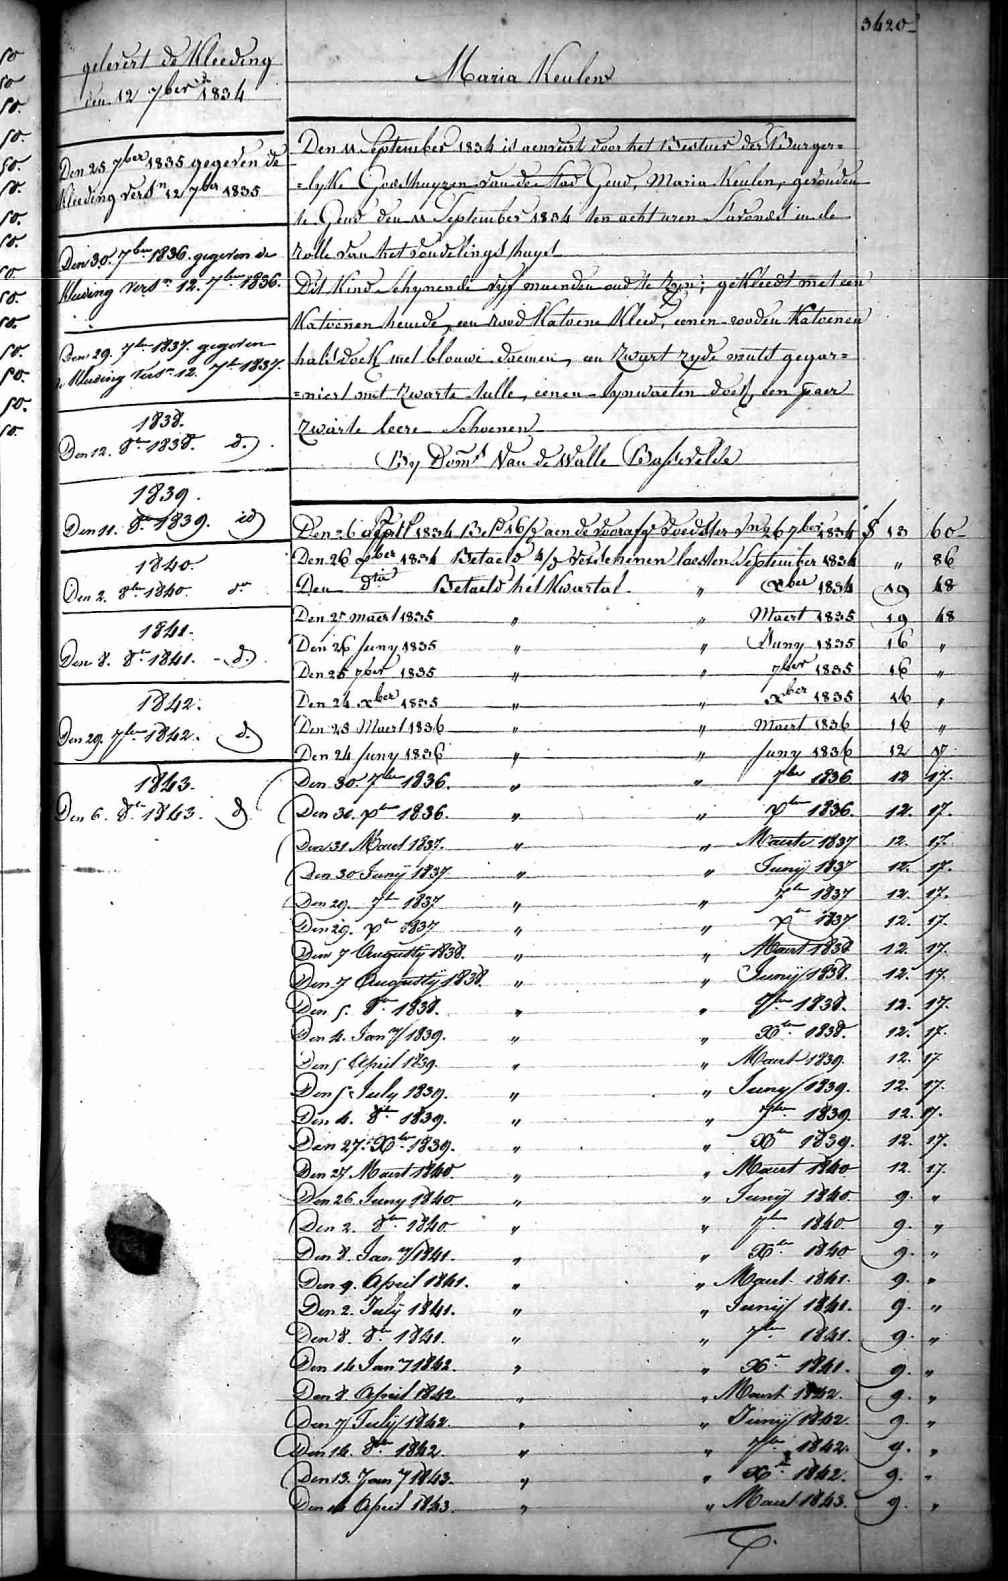 3620
gelevert de Kleeding
den 12 7ber 1834
Den 25 7ber 1835 gegeven de
Kleeding versn 12 7ber 1835
Den 30. 7ber 1836. gegeven de
Kleeding versn 12. 7ber 1836.
Den 29. 7br 1837. gegeven
Kleeding versn 12. 7br 1837.
1838.
Den 12. 8br 1838. d.)
1839.
Den 11. 8br 1839. id)
1840
Den 2. 8bre 1840. do
1841.
Den 8. 8br 1841. - d.)
1842.
Den 29. 7bre 1842. d.)
1843.
Den 6. 8br 1843. d)
Maria Keulen
Den 11 September 1834 is aenveirt door het Bestuer der Burger=
=lyke Godshuyzen van de Stad Gend, Maria Keulen, gevonden
te Gend den 11 September 1834 ten acht uren S'avonds in de
Rolle van het vondelings huys
Dit Kind schynende vyf maenden oud te zyn; gekleedt met een
Katoenen hemde, een rood Katoene Kleed, eenen rooden Katoenen
halsdoek met blouwe bloemen, en zwart zyde muts gegar=
=niert met zwarte tulle, eenen lynwaeten doek, een paer
zwarte leere Schoenen
By Doms Van de Walle Bassevelde
Den 26 1834 aen de voorafg. Voedster 26 7ber 1834 13 60
Den 26 9ber 1834 Betaeld 4/5 verschenen laesten September 1834 " 86
Den dito Betaeld het Kwartal " Xber 1834 19 48
Den 25 maert 1835 " " Maert 1835 19 48
Den 26 Juny 1835 " " Juny 1835 16 "
Den 25 7ber 1835 " " 7ber 1835 16 "
Den 24 Xber 1835 " " Xber 1835 16 "
Den 25 Maert 1836 " " Maert 1836 16 "
Den 24 Juny 1836 " " Juny 1836 12 17
Den 30. 7ber 1836. " " 7ber 1836 12 17.
Den 30. Xbr 1836. " " Xbr 1836. 12. 17.
Den 31 Maert 1837. " " Maerte 1837 12. 17.
Den 30 Junij 1837 " " Junij 1837 12. 17.
Den 29. 7br 1837 " " 7br 1837 12. 17.
Den 29. Xbr 1837 " " Xbr 1837 12. 17.
Den 7 Augusty 1838. " " Maert 1838 12. 17.
Den 7 Augustij 1838. " " Junij 1838. 12. 17.
Den 5. 8br 1838. " " 7bre 1838. 12. 17.
Den 4. Jany 1839. " " Xbr 1838. 12. 17.
Den 5 April 1839. " " Maert 1839. 12. 17
Den 5 July 1839. " " Juny 1839. 12. 17.
Den 4. 8br 1839. " " 7bre 1839 12. 17.
Den 27. Xbr 1839. " " Xbr 1839. 12. 17.
Den 27 Maert 1840. " " Maert 1840 12. 17.
Den 26 Juny 1840 " " Junij 1840 9. "
Den 2. 8br 1840 " " 7br 1840 9. "
Den 8. Jany 1841. " " Xbr 1840 9. "
Den 9. April 1841. " " Maert 1841. 9. "
Den 2. Julij 1841. " " Junij 1841. 9. "
Den 8. 8br 1841. " " 7br 1841. 9. "
Den 14 Jany 1842 " " Xbr 1841. 9. "
Den 8. April 1842 " " Maert 1842. 9. "
Den 7 July 1842. " " Junij 1842. 9. "
Den 14. 8br 1842. " " 7br 1842. 9. "
Den 13. Jany 1843. " " Xbr 1842. 9. "
Den 14 April 1843. " " Maert 1843. 9. "